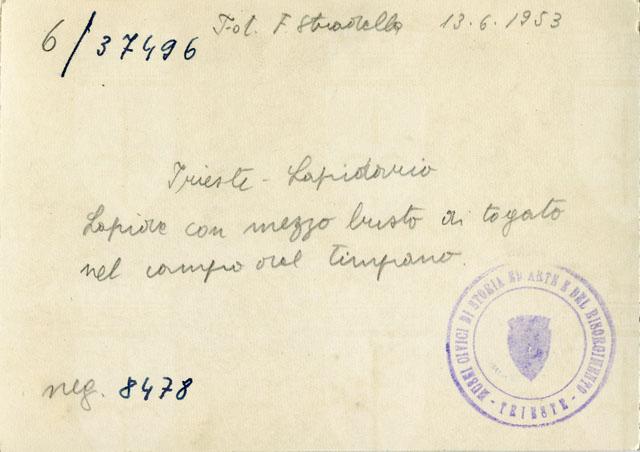 6/37496
Fot. F. Stradella 13.6.1953
Trieste - Lapidario
Lapide con mezzo busto di togato
nel campo del timpano.
neg. 8478
MUSEI CIVICI DI STORIA ED ARTE E DEL RISORGIMENTO
- TRIESTE -